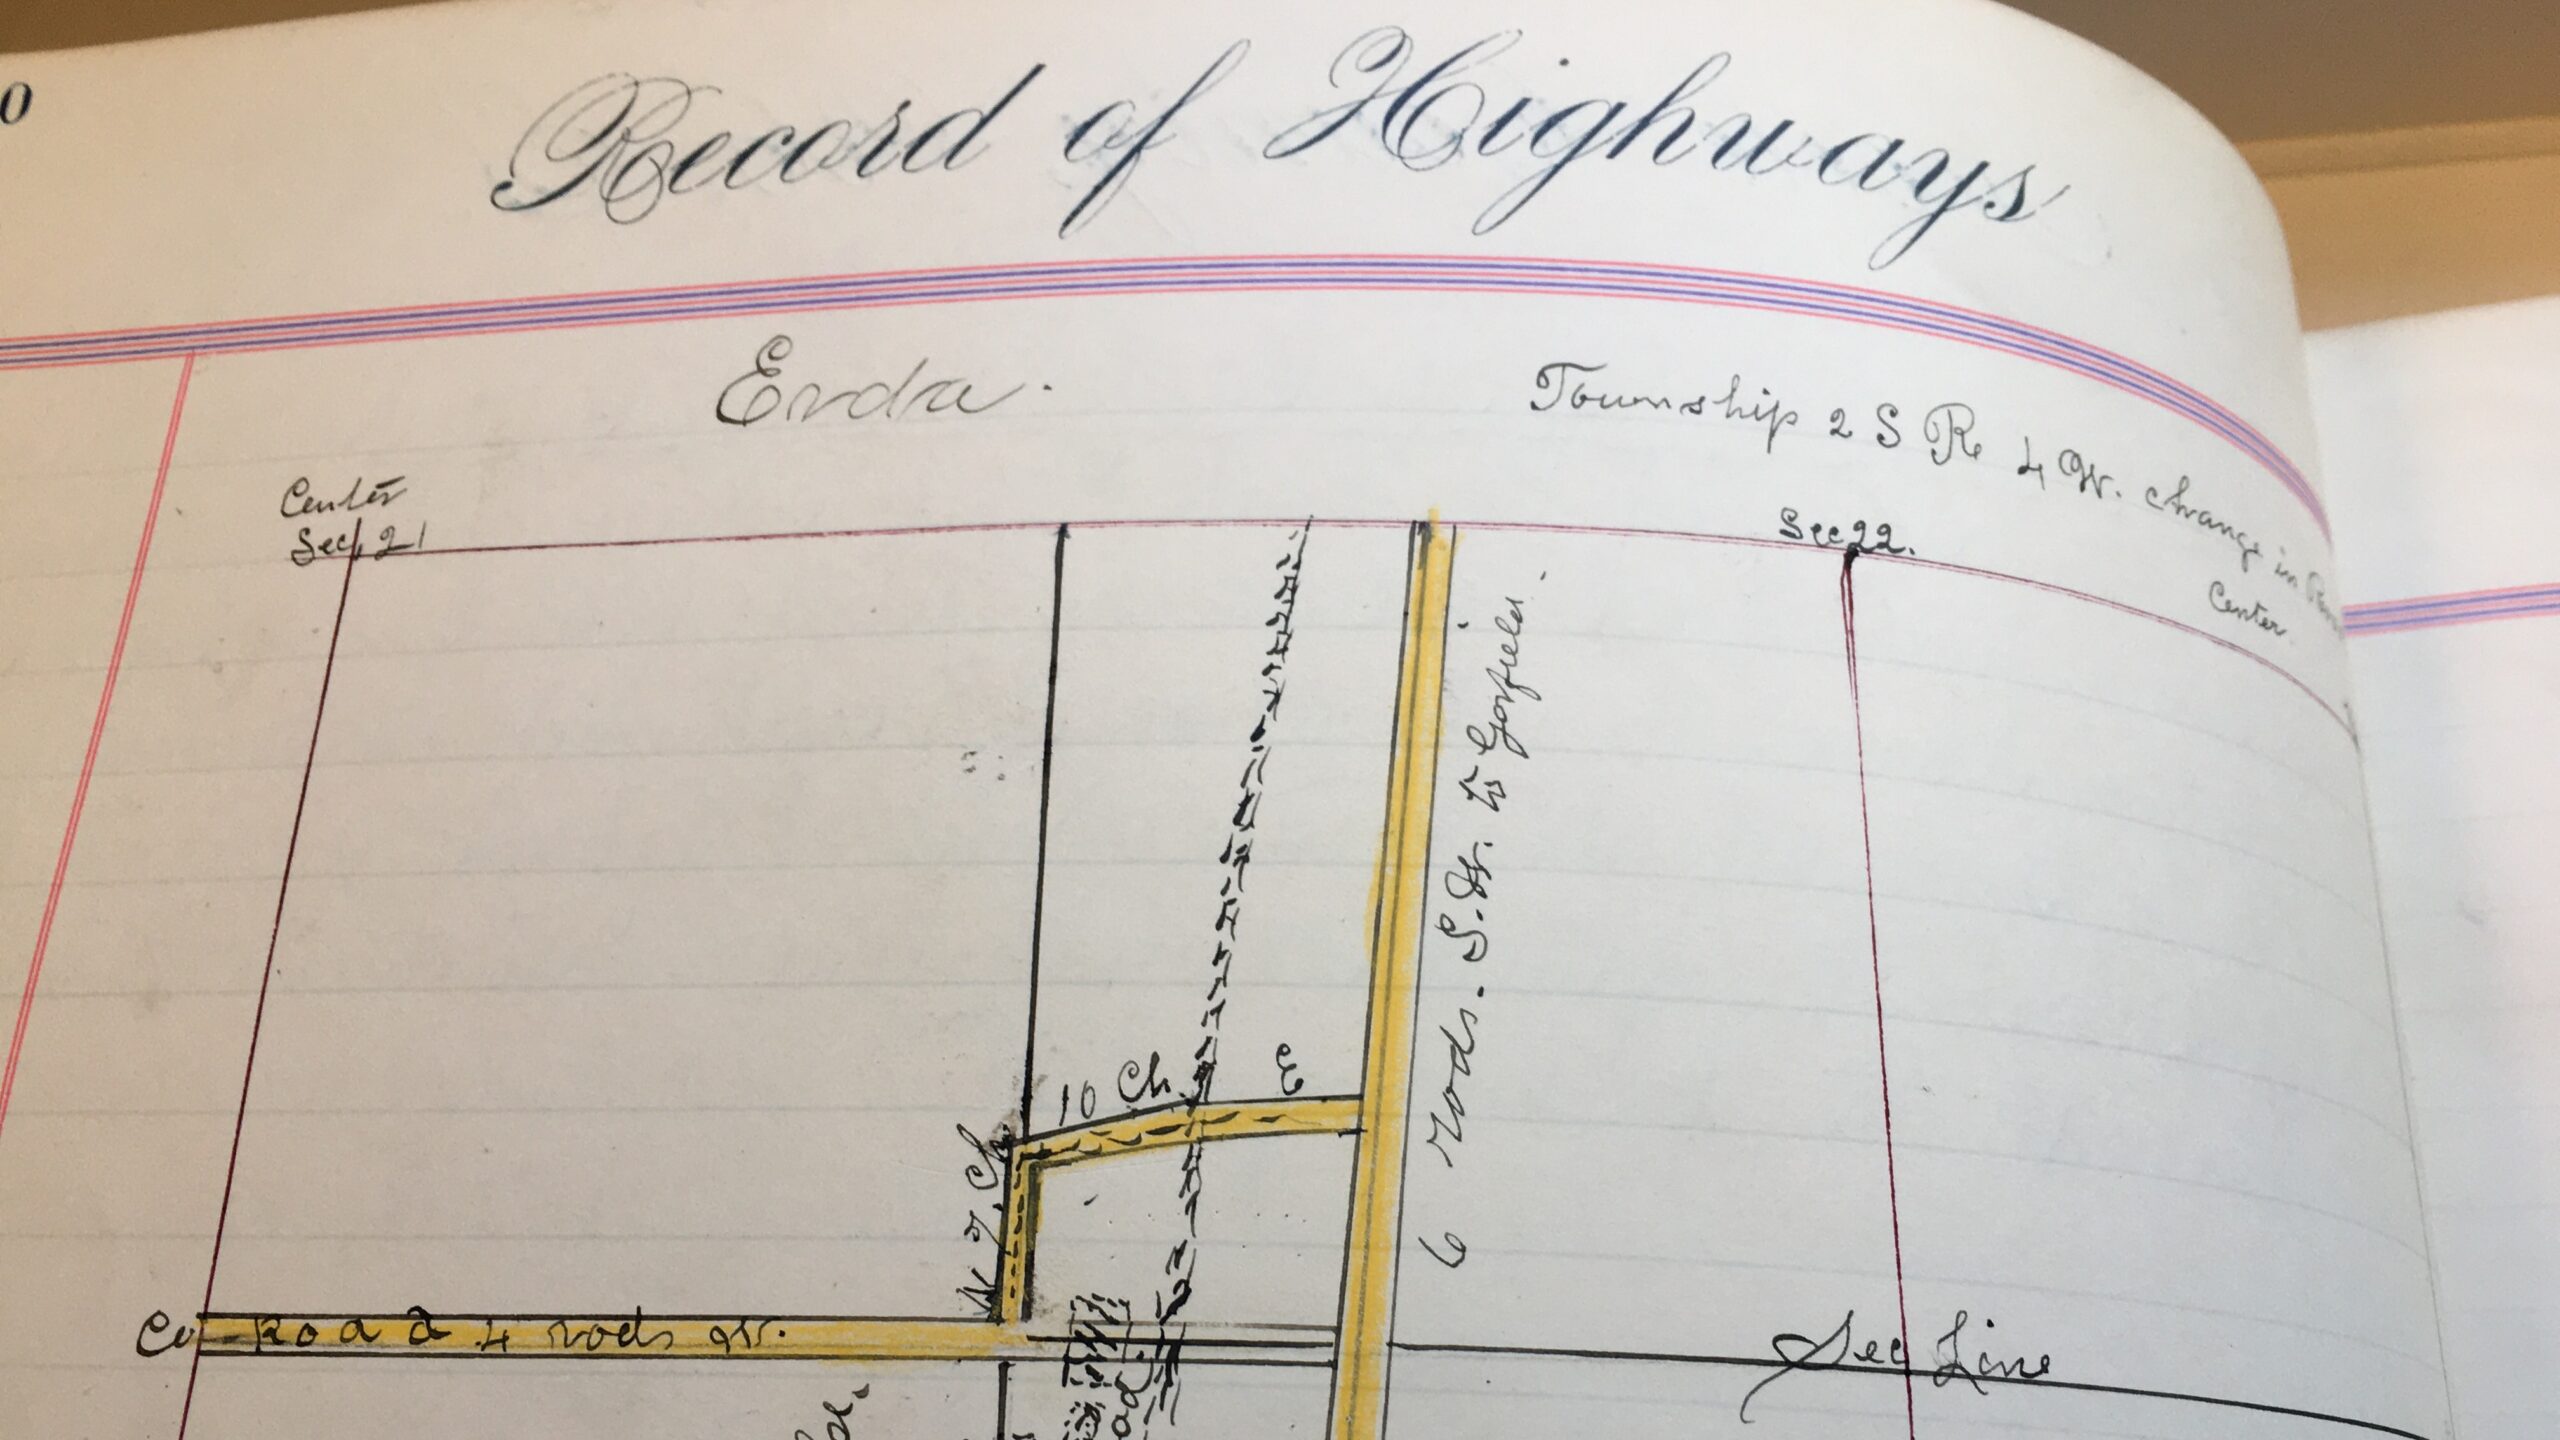 0
Record of Highways
Erda.
Township 2 S R 4 W. change in
Center
Center
Sec. 21
Sec 22.
6 rods. S. Dr. to Garfield.
10 Ch. E
N 7. Ch
Co Road 4 rods W.
Sec Line